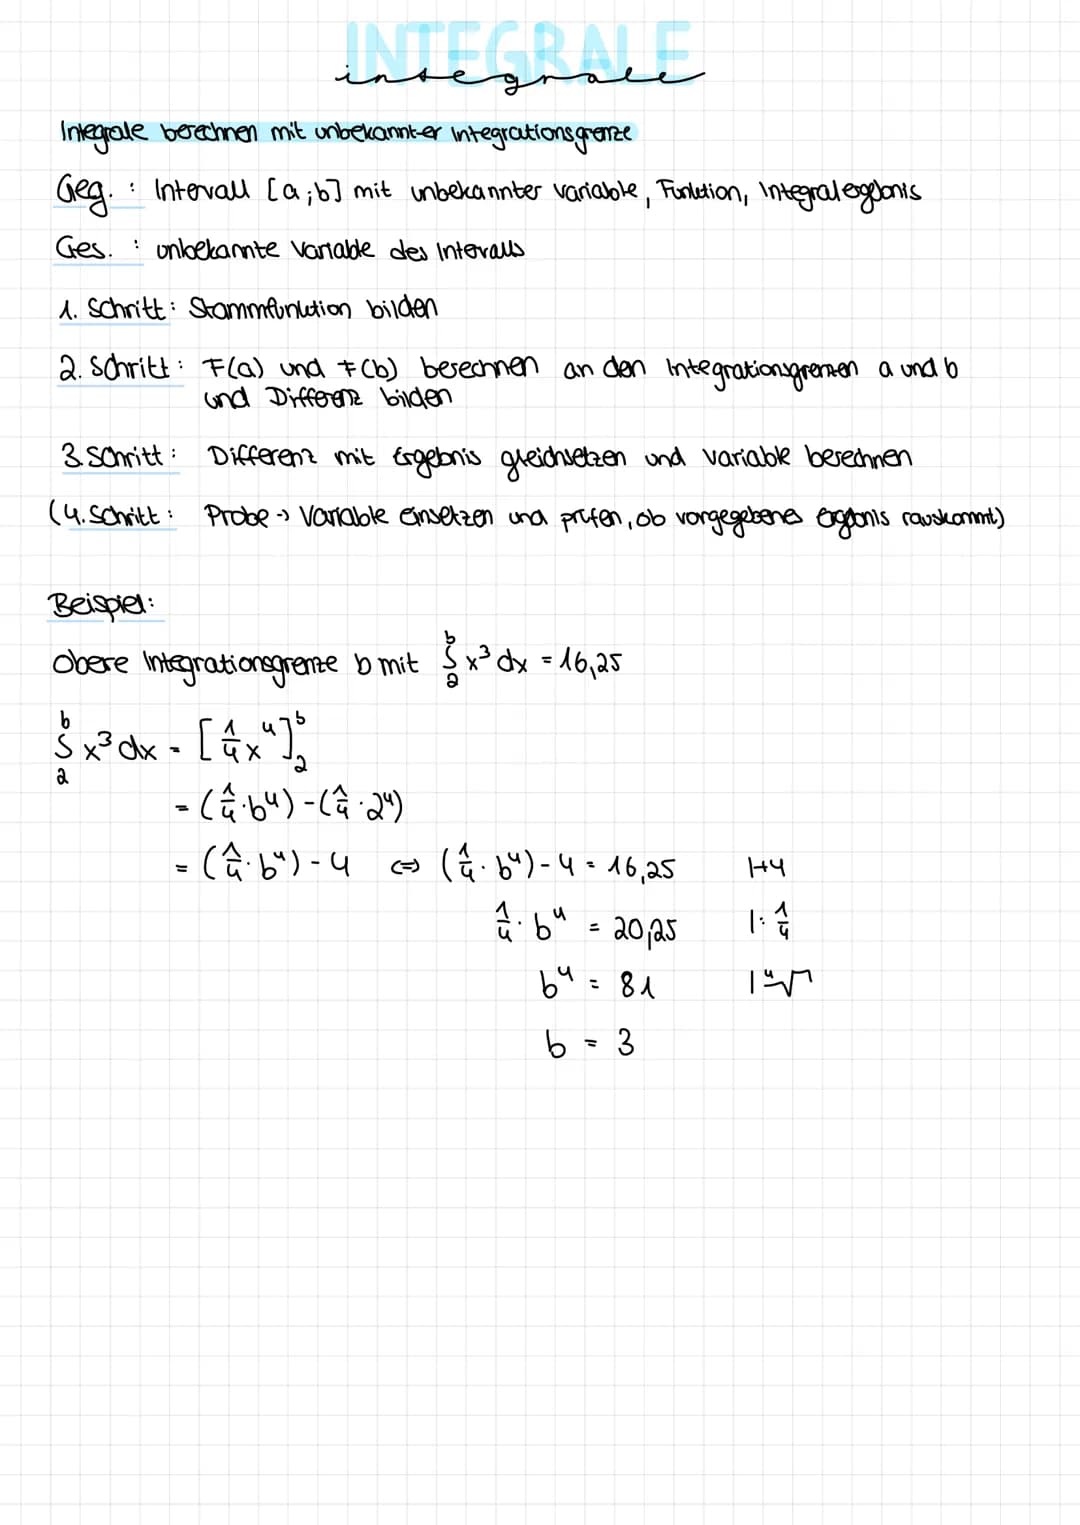 INTEGRALE
integrale
Integrale berechnen mit unbekannter Integrationsgrenze
Geg. : Intervall [a;b] mit unbekannter Variable, Funktion, Integralergebnis
Ges. : unbekannte Variable des Intervalls
1. Schritt: Stammfunktion bilden
2. Schritt: F(a) und F(b) berechnen an den Integrationsgrenzen a und b
und Differenz bilden
3. Schritt: Differenz mit Ergebnis gleichsetzen und Variable berechnen
(4. Schritt: Probe → Variable einsetzen und prüfen, ob vorgegebenes Ergebnis rauskommt)
Beispiel:
Obere Integrationsgrenze b mit ∫₂ᵇ x³ dx = 16,25
∫₂ᵇ x³ dx = [1/4 x⁴]₂ᵇ
= (1/4·b⁴) - (1/4·2⁴)
= (1/4·b⁴) - 4 ⇔ (1/4·b⁴) - 4 = 16,25 |+4
1/4·b⁴ = 20,25 |: 1/4
b⁴ = 81 |⁴√
b = 3